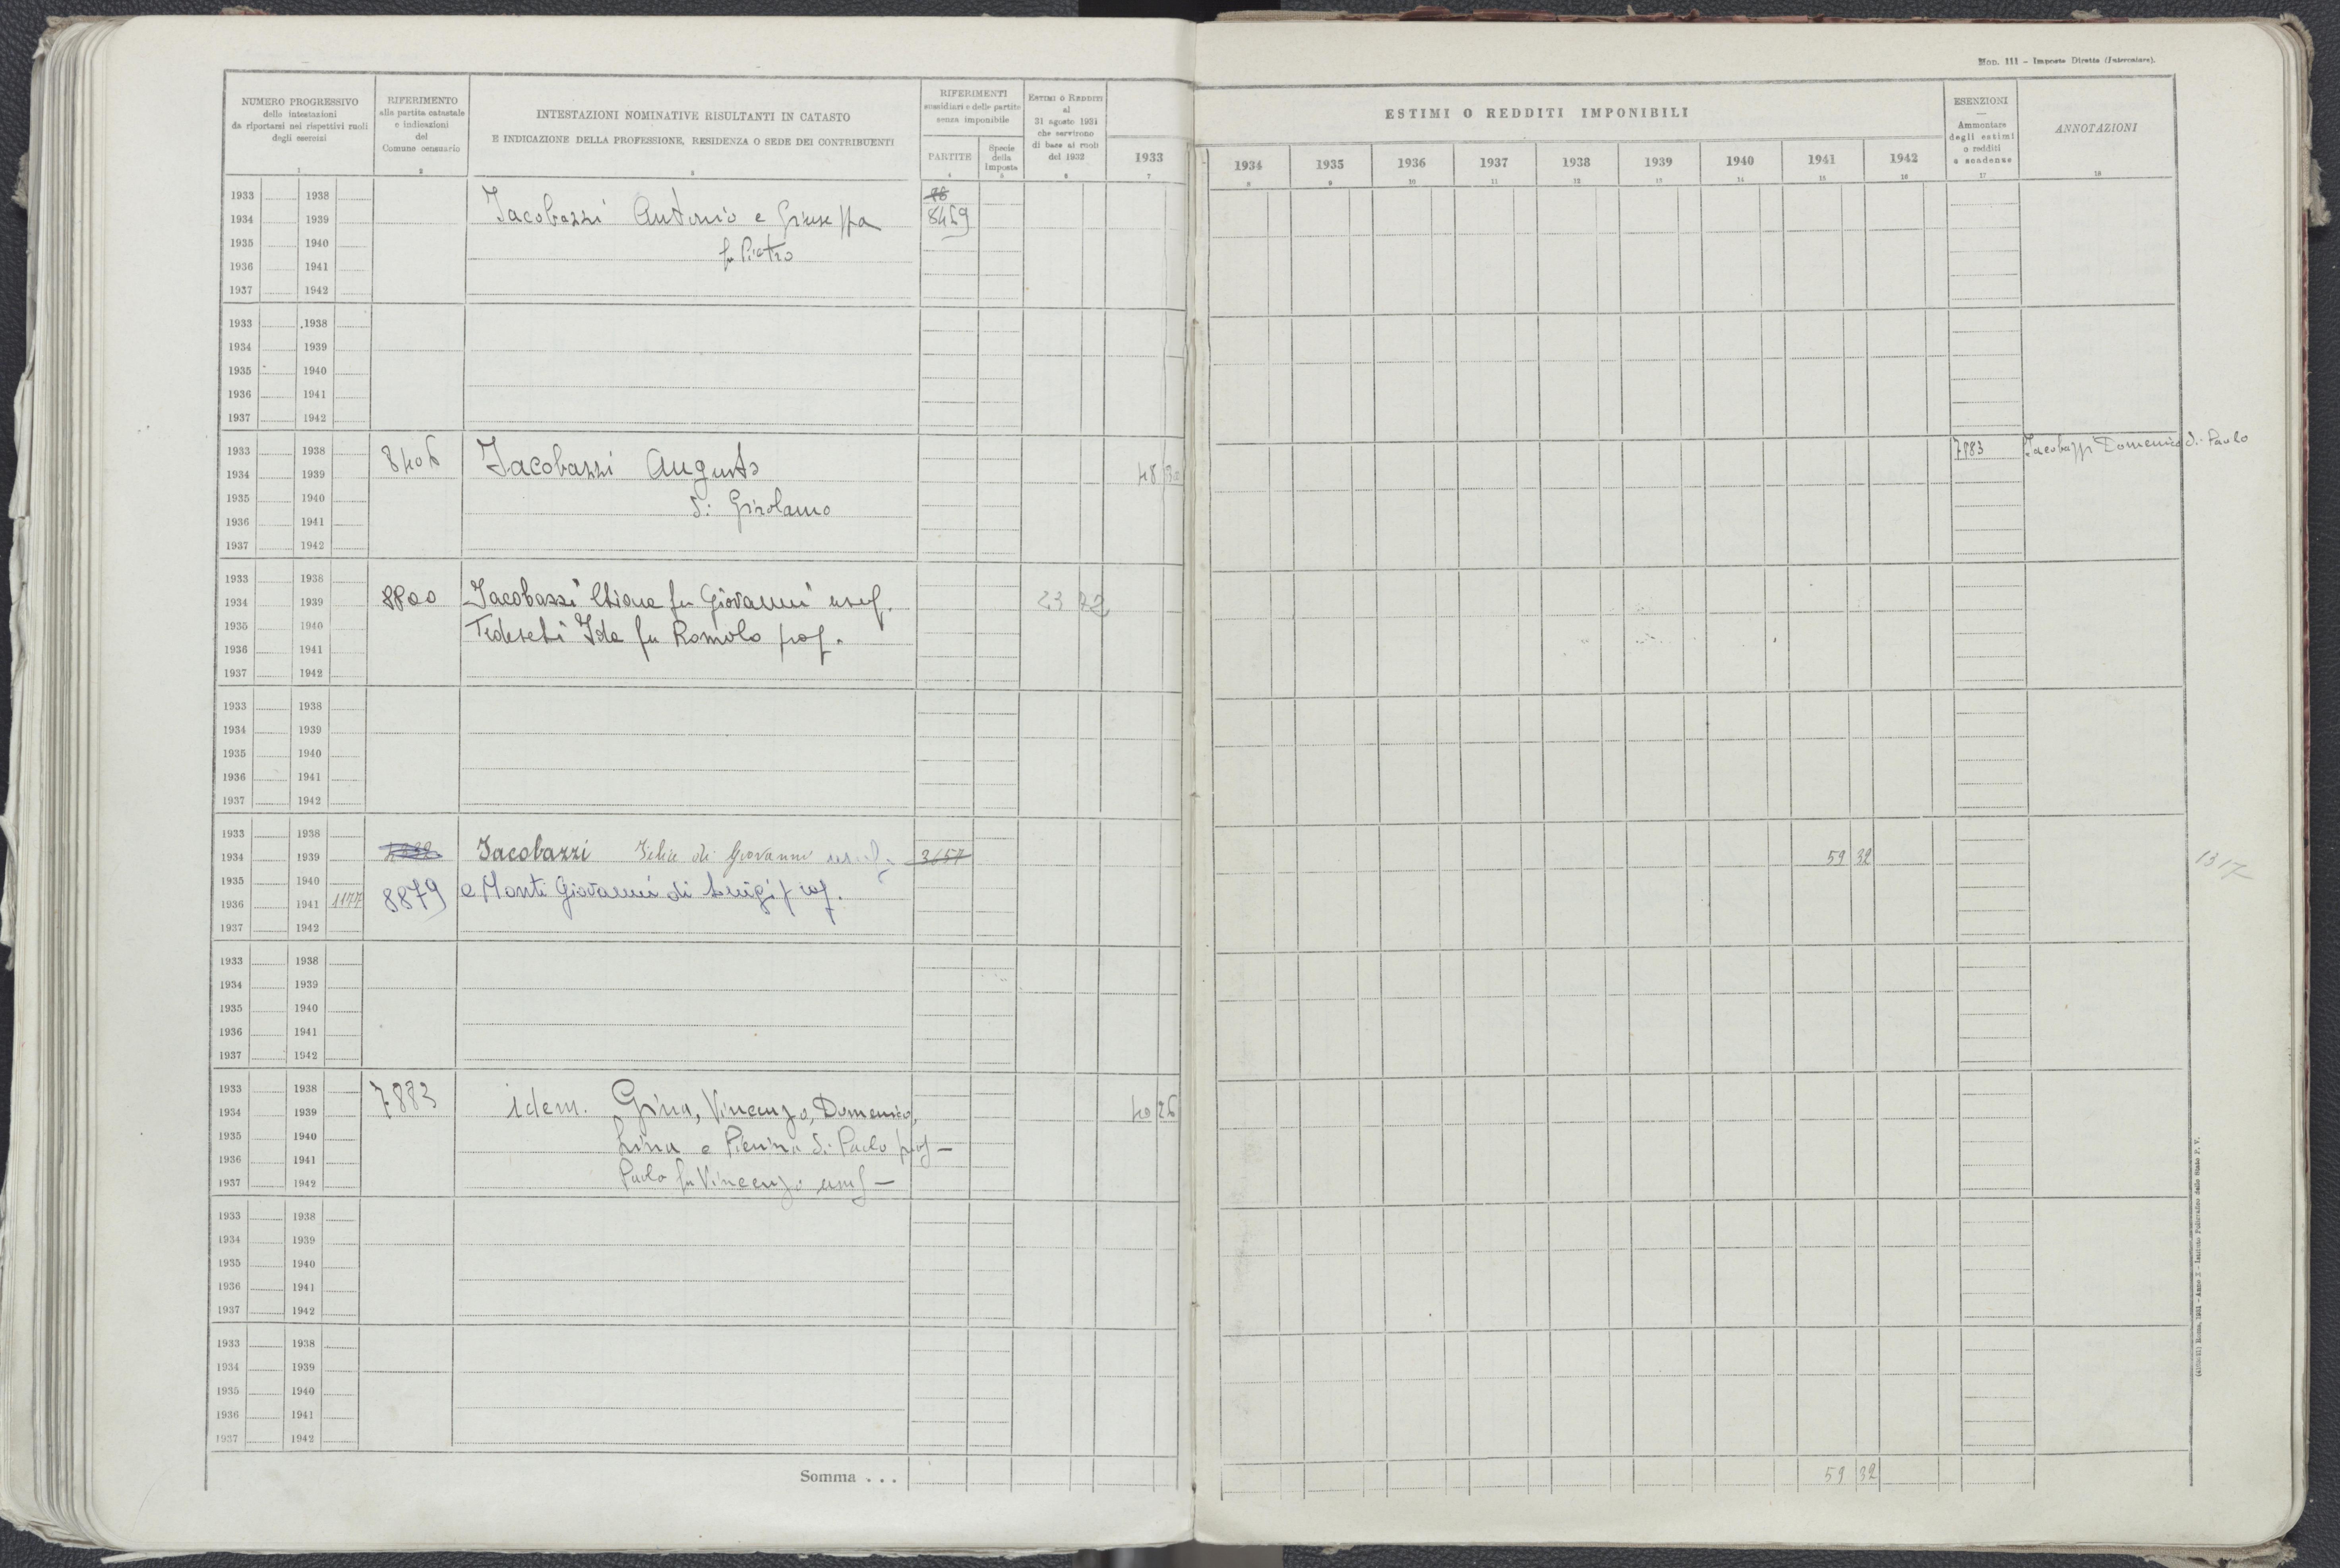 Mod. 111 – Imposte Dirette (Intercalare).
NUMERO PROGRESSIVO
delle intestazioni
da riportarsi nei rispettivi ruoli
degli esercizi
1
RIFERIMENTO
alla partita catastale
e indicazioni
del
Comune censuario
2
INTESTAZIONI NOMINATIVE RISULTANTI IN CATASTO
E INDICAZIONE DELLA PROFESSIONE, RESIDENZA O SEDE DEI CONTRIBUENTI
3
RIFERIMENTI
sussidiari e delle partite
senza imponibile
PARTITE
4
Specie
della
Imposta
5
ESTIMI O REDDITI
al
31 agosto 1931
che servirono
di base ai ruoli
del 1932
6
ESTIMI O REDDITI IMPONIBILI
1933 1934 1935 1936 1937 1938 1939 1940 1941 1942
7 8 9 10 11 12 13 14 15 16
ESENZIONI
—
Ammontare
degli estimi
o redditi
e scadenze
17
ANNOTAZIONI
18
1933 1938
1934 1939 Jacobazzi Antonio e Giuseppa 8459
1935 1940 fu Pietro
1936 1941
1937 1942
1933 1938
1934 1939
1935 1940
1936 1941
1937 1942
1933 1938 8406 Jacobazzi Augusto 7883 Jacobazzi Domenico di Paolo
1934 1939 48 30
1935 1940 di Girolamo
1936 1941
1937 1942
1933 1938
1934 1939 8800 Jacobazzi Chiara fu Giovanni usuf. 23 22
1935 1940 Tedeschi Ida fu Romolo prop.
1936 1941
1937 1942
1933 1938
1934 1939
1935 1940
1936 1941
1937 1942
1933 1938
1934 1939 Jacobazzi Felice di Giovanni usuf. 3657 59 32 1317
1935 1940
1936 1941 1177 8879 e Monti Giovanni di Luigi prop.
1937 1942
1933 1938
1934 1939
1935 1940
1936 1941
1937 1942
1933 1938 7883
1934 1939 idem. Gina, Vincenzo, Domenico, 40 26
1935 1940 Lina e Pierina di Paolo prop –
1936 1941
1937 1942 Paolo fu Vincenzo usuf –
1933 1938
1934 1939
1935 1940
1936 1941
1937 1942
1933 1938
1934 1939
1935 1940
1936 1941
1937 1942
Somma . . . 59 32
Roma, 1931 - Anno X - Istituto Poligrafico dello Stato P. V.